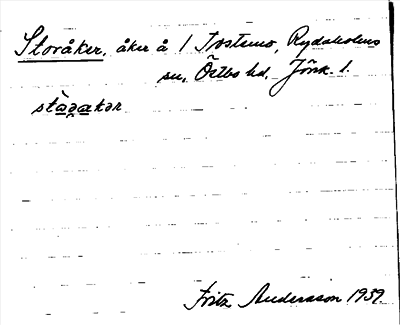 Storåker, åker å 1 Tostemo, Rydaholms
sn, Östbo hd, Jönk. l.
Fritz Andersson 1939.